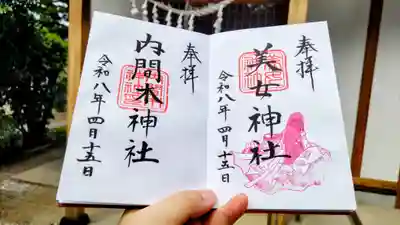 奉拝
美女神社
令和八年四月十五日
奉拝
内間木神社
令和八年四月十五日